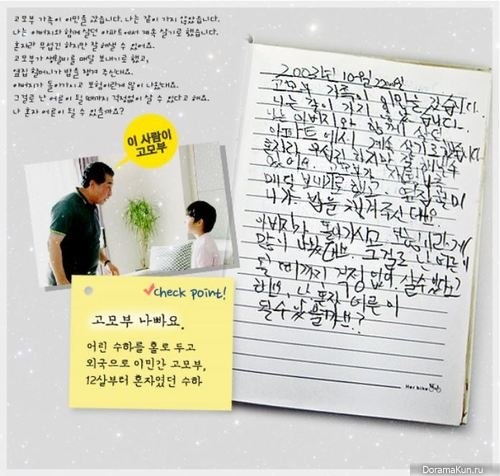 고모부 가족이 이민을 갔습니다. 나는 같이 가지 않았습니다.
나는 아버지와 함께 살던 아파트에서 계속 살기로 했습니다.
혼자라 무섭긴 하지만 잘 해낼 수 있어요.
고모부가 생활비를 매달 보내기로 했고,
옆집 할머니가 밥을 챙겨 주신대요.
아버지가 돌아가시고 보험이란게 많이 나왔대요.
그걸로 난 어른이 될 때까지 걱정없이 살 수 있다고 해요.
나 혼자 어른이 될 수 있을까요?
이 사람이
고모부
check point!
고모부 나빠요.
어린 수하를 홀로 두고
외국으로 이민간 고모부,
12살부터 혼자였던 수하
2003년 10월 22일
고모부 가족이 이민을 갔습니다.
나는 같이 가지 않았습니다.
나는 아버지와 함께 살던
아파트에서 계속 살기로 했습니다
혼자라 무섭긴 하지만 잘 해낼 수
있어요. 고모부가 생활비를
매달 보내기로 했고, 옆집 할머
니가 밥을 챙겨주신대요
아버지가 돌아가시고 보험이란게
많이 나왔대요. 그걸로 난 어른이
될 때까지 걱정 없이 살수 있다고
해요. 나 혼자 어른이
될수 있을까요?
DoramaKun.ru